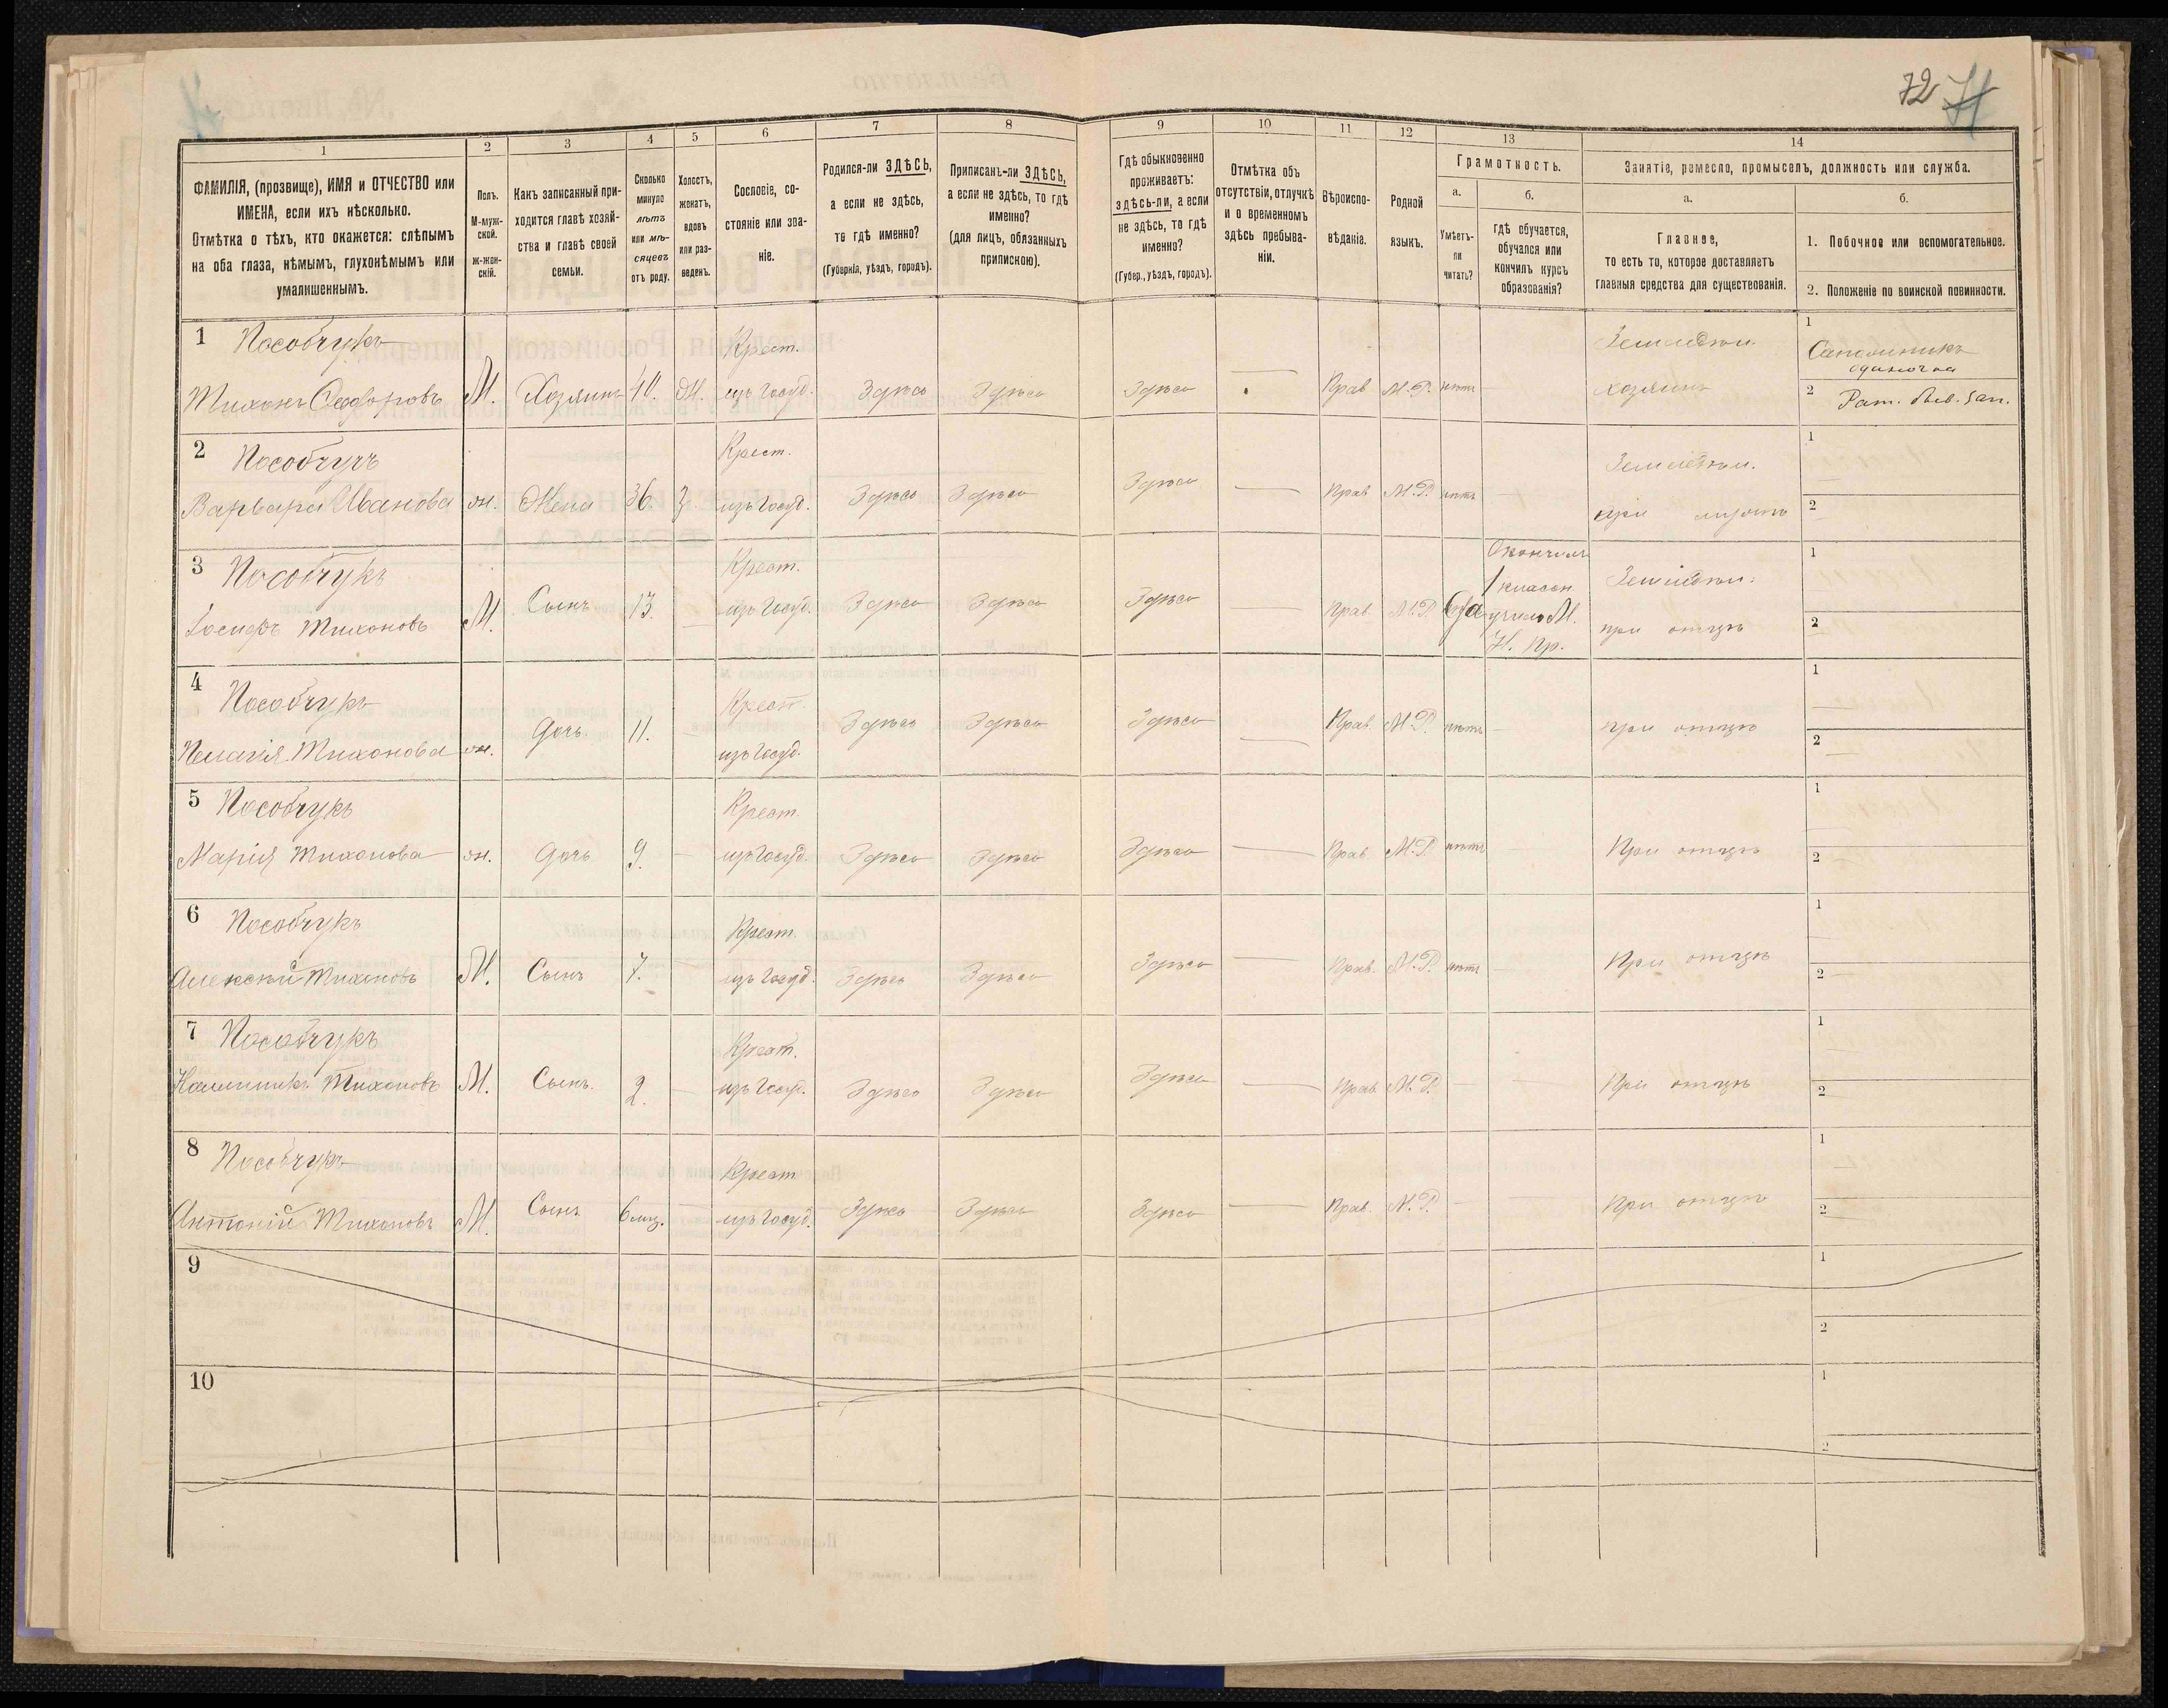 72 71
1 2 3 4 5 6 7 8 9 10 11 12 13 14
ФАМИЛІЯ, (прозвище), ИМЯ и ОТЧЕСТВО или
ИМЕНА, если ихъ нѣсколько.
Отмѣтка о тѣхъ, кто окажется: слѣпымъ
на оба глаза, нѣмымъ, глухонѣмымъ или
умалишеннымъ.
Полъ.
М-муж-
ской.
ж-жен-
скій.
Какъ записанный при-
ходится главѣ хозяй-
ства и главѣ своей
семьи.
Сколько
минуло
лѣтъ
или мѣ-
сяцевъ
отъ роду.
Холостъ,
женатъ,
вдовъ
или раз-
веденъ.
Сословіе, со-
стояніе или зва-
ніе.
Родился-ли ЗДѢСЬ,
а если не здѣсь,
то гдѣ именно?
(Губернія, уѣздъ, городъ).
Приписанъ-ли ЗДѢСЬ,
а если не здѣсь, то гдѣ
именно?
(для лицъ, обязанныхъ
припискою).
Гдѣ обыкновенно
проживаетъ:
здѣсь-ли, а если
не здѣсь, то гдѣ
именно?
(Губер., уѣздъ, городъ).
Отмѣтка объ
отсутствіи, отлучкѣ
и о временномъ
здѣсь пребыва-
ніи.
Вѣроиспо-
вѣданіе.
Родной
языкъ.
Грамотность.
а.
Умѣетъ-
ли
читать?
б.
гдѣ обучается,
обучался или
кончилъ курсъ
образованія?
Занятіе, ремесло, промыселъ, должность или служба.
а.
Главное,
то есть то, которое доставляетъ
главныя средства для существованія.
б.
1. Побочное или вспомогательное.
2. Положеніе по воинской повинности.
1 Пособчукъ Крест. Земледѣл. 1 Сапожникъ
одиночка
Тихонъ Ѳедоровъ М. Хозяинъ 40. Ж. изъ госуд. Здѣсь Здѣсь Здѣсь Прав М.Р. нѣтъ хозяинъ 2 Рат.
2 Пособчукъ Крест. Земледѣл. 1
Варвара Иванова ж. Жена 36. З. изъ госуд. Здѣсь Здѣсь Здѣсь Прав М.Р. нѣтъ при мужѣ 2
3 Пособчукъ Крест. Окончилъ Земледѣл. 1
1 класн.
Іосифъ Тихоновъ М. Сынъ 13. изъ госуд. Здѣсь Здѣсь Здѣсь Прав. М.Р. да учил. М. при отцѣ 2
Н. Пр.
4 Пособчукъ Крест. 1
Пелагія Тихонова ж. Дочь 11. изъ госуд. Здѣсь Здѣсь Здѣсь Прав. М.Р. нѣтъ при отцѣ 2
5 Пособчукъ Крест. 1
Марія Тихонова ж. Дочь 9. изъ госуд. Здѣсь Здѣсь Здѣсь Прав. М.Р. нѣтъ При отцѣ 2
6 Пособчукъ Крест. 1
Алексѣй Тихоновъ М. Сынъ 7. изъ госуд. Здѣсь Здѣсь Здѣсь Прав. М.Р. нѣтъ При отцѣ 2
7 Пособчукъ Крест. 1
Каллиникъ Тихоновъ М. Сынъ. 2. изъ госуд. Здѣсь Здѣсь Здѣсь Прав. М.Р. При отцѣ 2
8 Пособчукъ Крест. 1
Антоній Тихоновъ М. Сынъ 6 мѣс. изъ госуд. Здѣсь Здѣсь Здѣсь Прав. М.Р. При отцѣ 2
9 1
2
10 1
2